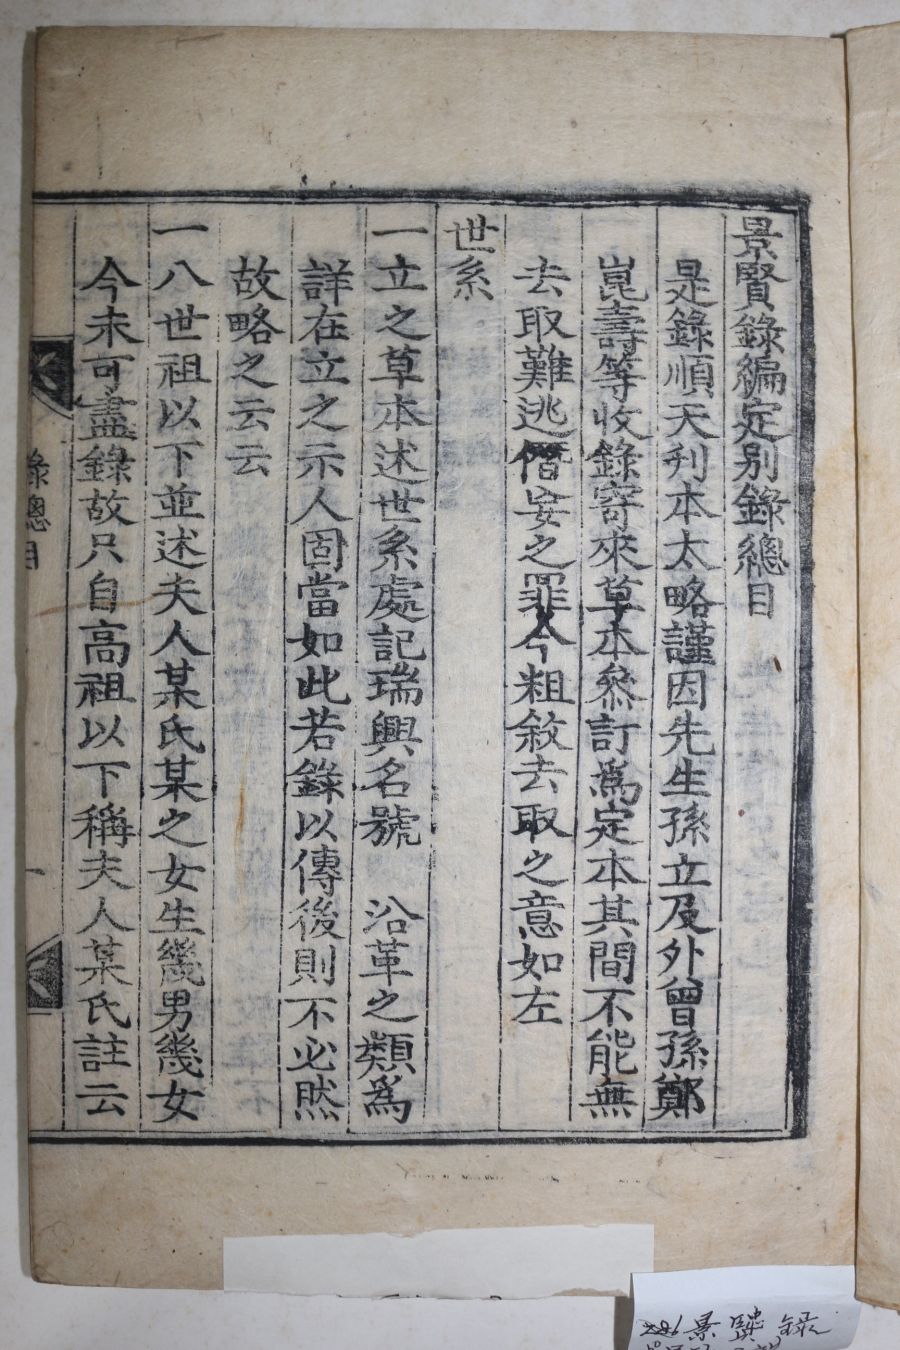 景賢錄編定別錄總目
是錄順天刋本太略謹因先生孫立及外曾孫鄭
崑壽等收錄寄來草本叅訂爲定本其間不能無
去取難逃僭妄之罪今粗敘去取之意如左
世系
一立之草本述世系處記瑞興名號 沿革之類爲
詳在立之示人固當如此若錄以傳後則不必然
故略之云云
一八世祖以下並述夫人某氏某之女生幾男幾女
今未可盡錄故只自高祖以下稱夫人某氏註云
錄總目
一
景賢錄